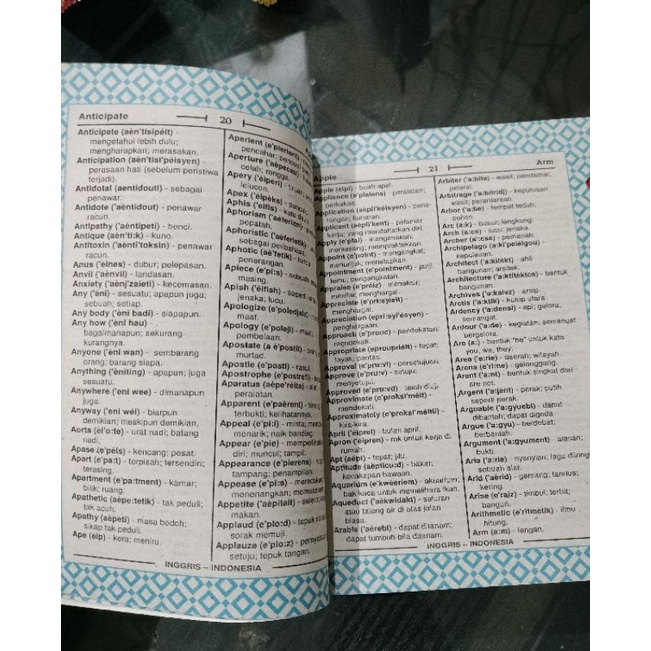 Anticipate
20
Anticipate (aèn'tisipéit) -
mengetahui lebih dulu;
mengharapkan; merasakan.
Anticipation (aèn'tisi'péisyen) -
perasaan hati (sebelum peristiwa
terjadi).
Antidotal (aentidout!) - sebagai
penawar.
Antidote ('aèntidout) - penawar
racun.
Antipathy ('aèntipeti) - benci.
Antique (aèn'ti:k) - kuno.
Antitoxin (aènti'toksin) - penawar
racun.
Anus ('éines) - dubur; pelepasan.
Anvil ('aènvil) - landasan.
Anxiety (aènj'zaieti) - kecemasan.
Any ('èni) - sesuatu; apapun juga;
sebuah; setiap.
Any body ('èni badi) - siapapun.
Any how ('èni hau) -
bagaimanapun; sekurang-
kurangnya.
Anyone ('èni wan) - sembarang
orang; barang siapa.
Anything ('èniting) - apapun juga
sesuatu.
Anywhere ('èni wee) - dimanapun
juga.
Anyway ('èni wéi) - biarpun
demikian; meskipun demikian.
Aorta (éi'o:te) - urat nadi; batang
nadi.
Apase (e'péls) - kencang; pesat.
Apart (e'pa:t) - terpisah; tersendiri;
terasing.
Apartment (e'pa:tment) - kamar;
bilik; ruang.
Apathetic (aèpe:tetik) - tak peduli;
tak acuh.
Apathy (aèpeti) - masa bodoh;
sikap tak peduli.
Ape (éip) - kera; meniru.
Aperient (e'pierient)
pencahar;
Aperture ('aèpe
celah; rongga.
Apery ('éiperi)
lelucon.
Apex ('éipèks)
Aphis ('eifis) - kutu
Aphorism ('aèferizm)
pepatah.
Aphoristic ('aèferistik)
sebagai peribahasa.
Aphotic (aè'fetik)
penerangan.
Apiece (e'pi:s) -
masing.
Apish ('éifish)
jenaka; lucu.
Apologize (e'poledjaiz)
maaf.
Apology (e'poleji) - maaf
pembelaan.
Apostate
murtad.
Apostle (e'post) - rasul
Apostrophe (e'postrefi)
Aparatus (aèpe'réits)
peralatan.
Apparent (e'paèrent)
terbukti; kelihatannya.
Appeal (e'pi:l) - minta;
menarik; naik banding.
Appear (e'pie) - mempel
diri; muncul; tampil.
Appearance (e'pierens)
tampang; penampilan.
Appease (e'pi:s) - mereda
menenangkan; memuas
Appetite ('aèpitait) - selera
makan.
Applaud (e'plo:d) - tepuk
sorak memuji.
Applauze (e'plo:z) -
setuju; tepuk tangan.
INGGRIS – INDONESIA
Apple
21
Arm
Apple (eipl) - buah apel.
Appliance (e'plaiens) - peralatan;
perkakas.
Application (aepli'kèisyen) -
Applicant (aèpli'kent) - pelamar
kerja; yang mendaftarkan diri.
Apply (e'plai) -
memasang; mempraktekkan.
Appoint (e'point) - mengangkat;
menunjuk; menetapkan.
Appointment (e'pointment) - janji
temu; pengangkatan.
Appraise (e'préiz) - menaksir;
menilai; menghargai.
Appreciate (e'pri:syieit)
menghargai.
Appreciation (epri:syi'éisyen) -
penghargaan.
Approach (e'prouc) - pendekatan;
Appropriate (eproupriet) - tepat;
layak; pantas.
Approval (e'pru:vel) - persetujuan.
Approve (e'pru:v) - setuju;
menyetujui.
Approved (e'pru:vd) -
Approximate (e'proksi'meit) -
mendekati.
Approximately (e'proksi'meitli) -
kira-kira.
April ('éipril) - bulan april.
Apron ('éipren) - rok untuk kerja di
rumah.
Apt (aèpt) - tepat;
Aptitude (aèpticu:d) - bakat;
kecakapan bawaan.
Aquarium (e'kwèeriem) -
bak kaca untuk memelihara ikan.
Aqueduct ('aèkwidakt) - saluran
atau talang air di atas jalan
biasa.
Arable ('aèrebl) - dapat ditanam;
dapat tumbuh bila ditanam.
Arbiter ('a:bite) - wasit; pendamai;
pelerai.
Arbitrage ('a:bitridj) - keputusan
wasit; perantaraan.
Arbor ('a:be) - tempat teduh;
pohon.
Arc (a:k) - busur; lengkung.
Arch (a:c) - lucu; jenaka.
Archer (a:ce) - pemanah.
Archipelago (a:ki'peiégou) -
kepulauan.
Architect ('a:kitèkt) - ahli
bangunan; arsitek.
Architecture ('a:kitèktèce) - bentuk
bangunan.
Archives ('a:kaivz) - arsip.
Arctic ('a:ktik) - kutup utara.
Ardency ('a:densi) - api; gelora;
semangat.
Ardour ('a:de) - kegiatan; semangat
bergelora.
Are (a:) - bentuk "ne" untuk kata
you, we, they.
Area ('e:rie) - daerah; wilayah.
Arena (e'ri:ne) - gelanggang.
Arent ('a:nt) - bentuk singkat dari
are not.
Argent ('a:jent) - perak; putih
seperti perak.
Arguable ('a:gyuebl) - dapat
dibantah; dapat digoda
Argue ('a:gyu) - berdebat;
berbantah.
Argument ('a:gyument) - alasan;
bukti.
Aria ('a:rie) - nyanyian; lagu diiringi
sebuah alat.
Arid ('aèrid) - gersang; tandus;
kering.
Arise (e'raiz) - timbul; terbit;
bangun.
Arithmetic (e'ritmètik) - ilmu
hitung.
Arm (a:m) - lengan.
INGGRIS – INDONESIA